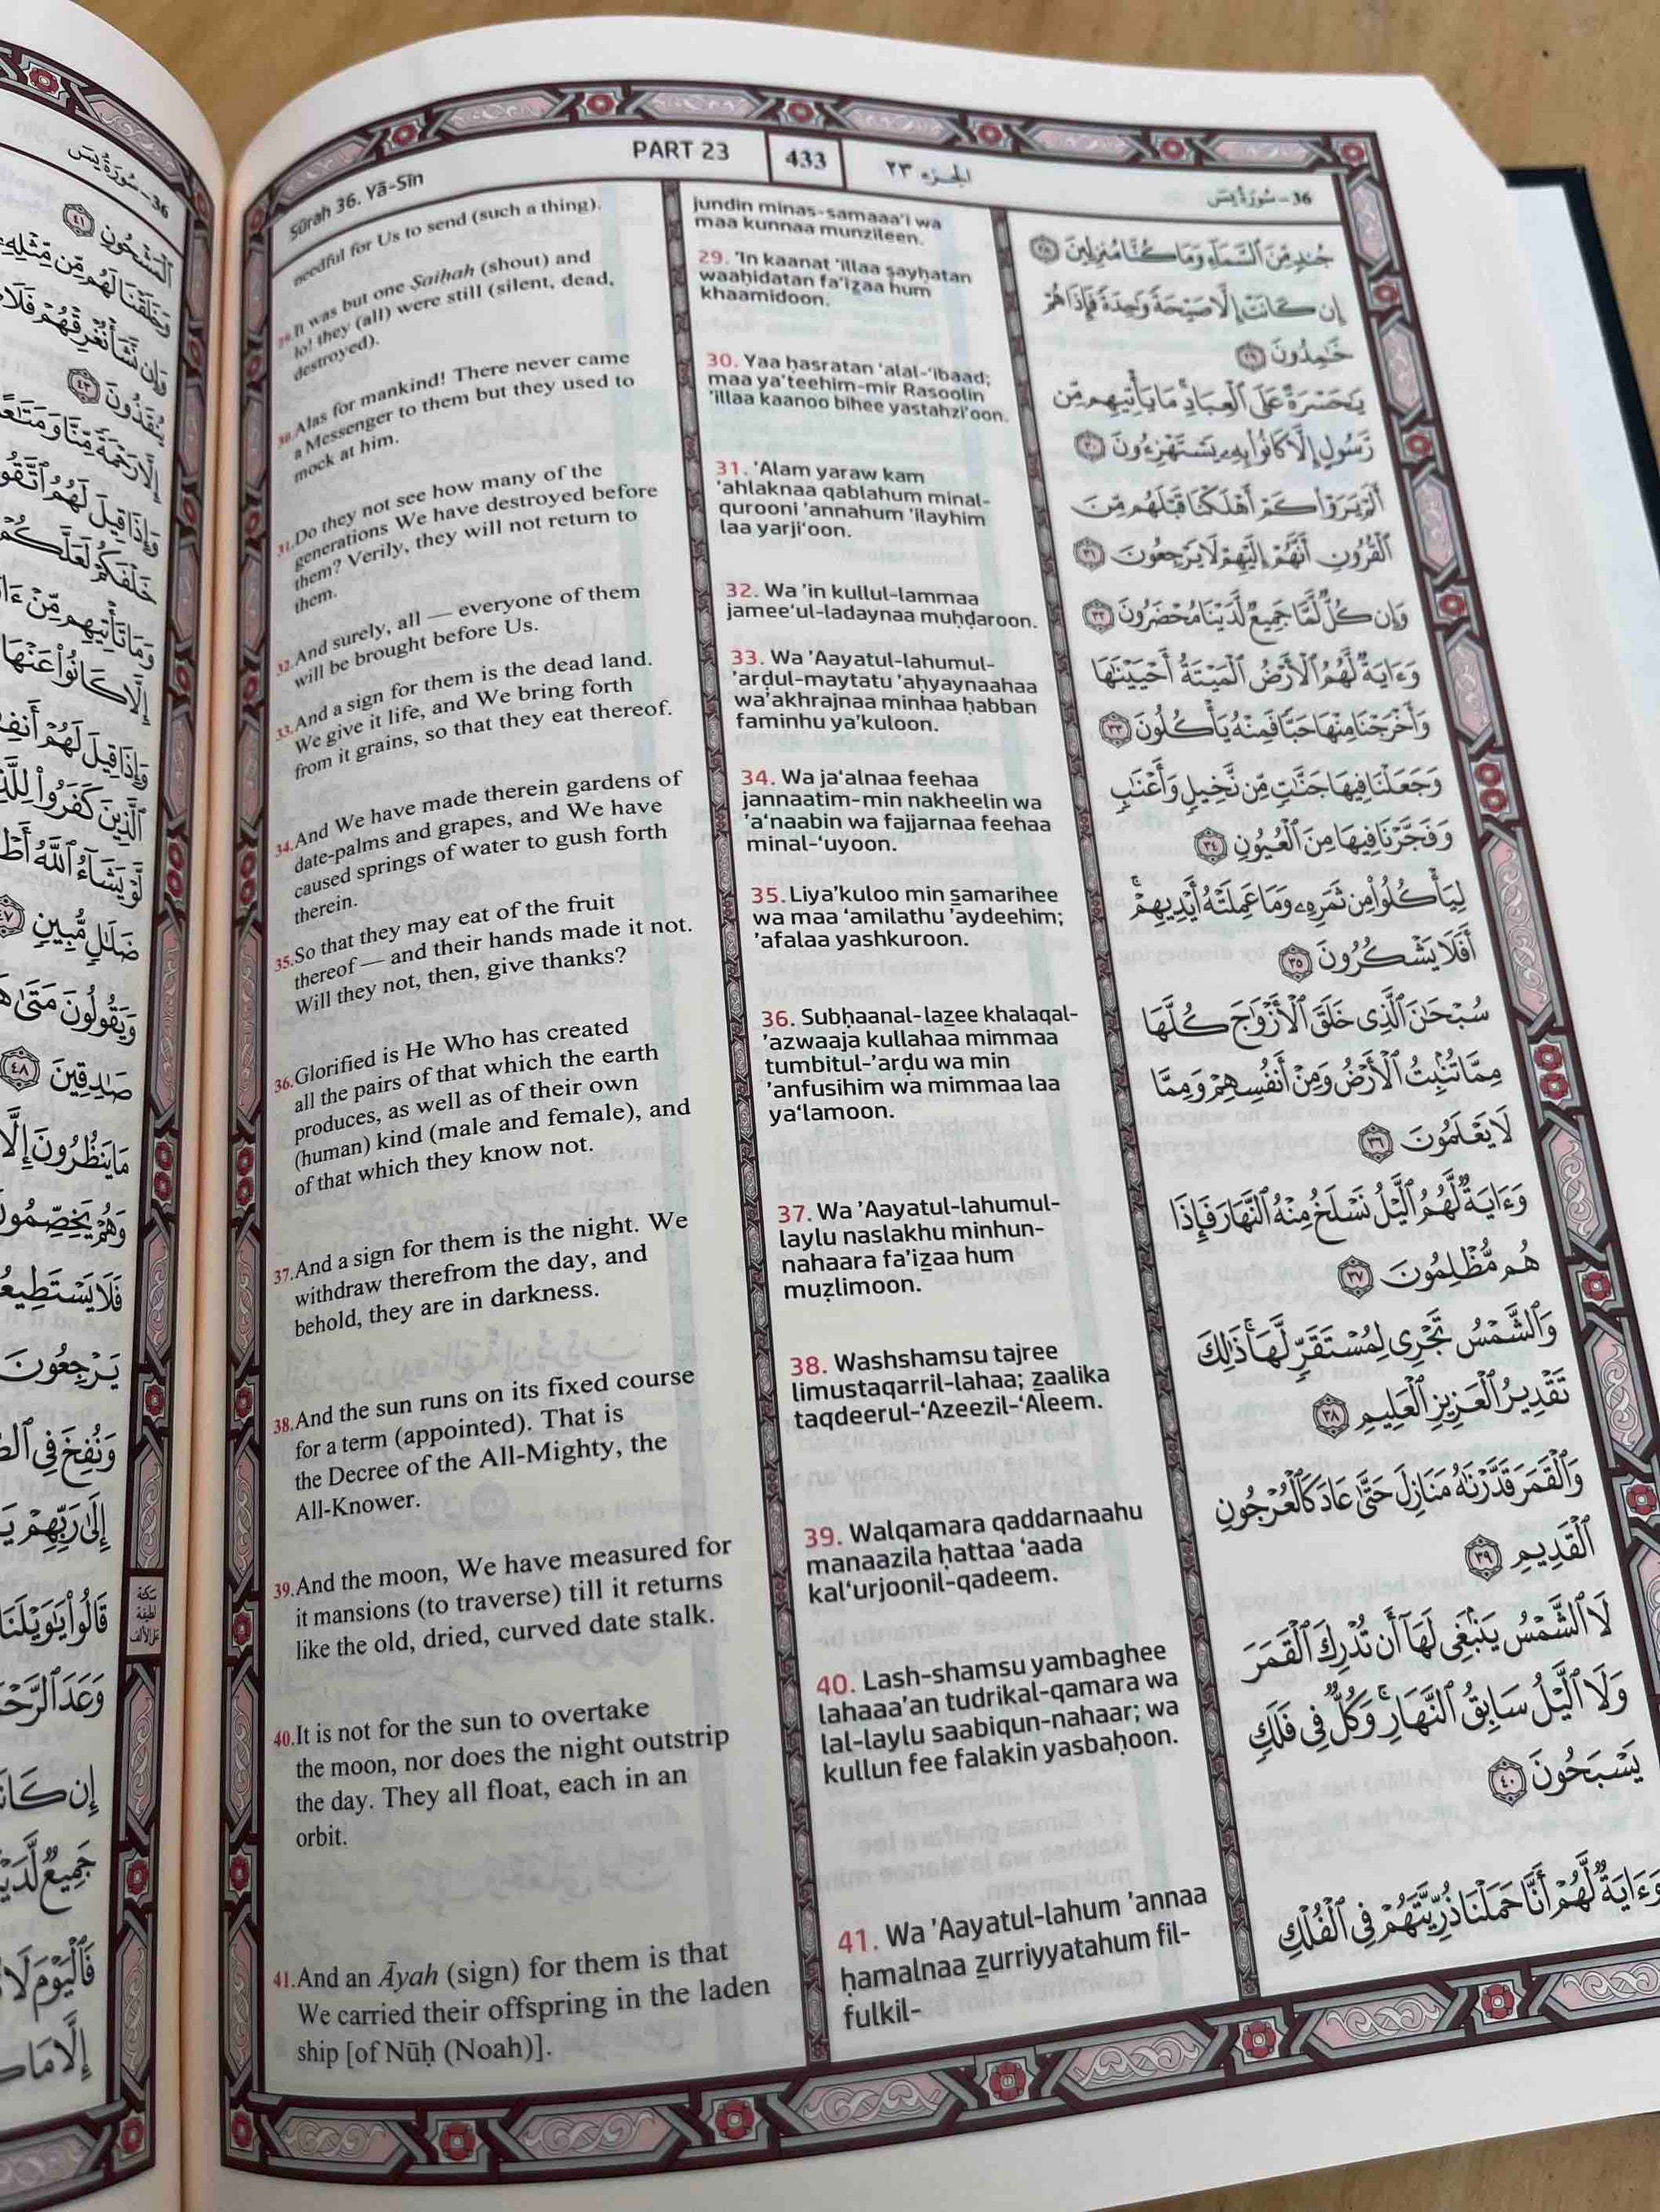 Sūrah 36. Yā-Sīn
PART 23
433
الجزء ٢٣
36 - سُورَةُ يسٓ
needful for Us to send (such a thing).
29.It was but one Saiḥah (shout) and
lo! they (all) were still (silent, dead,
destroyed).
30.Alas for mankind! There never came
a Messenger to them but they used to
mock at him.
31.Do they not see how many of the
generations We have destroyed before
them? Verily, they will not return to
them.
32.And surely, all — everyone of them
will be brought before Us.
33.And a sign for them is the dead land.
We give it life, and We bring forth
from it grains, so that they eat thereof.
34.And We have made therein gardens of
date-palms and grapes, and We have
caused springs of water to gush forth
therein.
35.So that they may eat of the fruit
thereof — and their hands made it not.
Will they not, then, give thanks?
36.Glorified is He Who has created
all the pairs of that which the earth
produces, as well as of their own
(human) kind (male and female), and
of that which they know not.
37.And a sign for them is the night. We
withdraw therefrom the day, and
behold, they are in darkness.
38.And the sun runs on its fixed course
for a term (appointed). That is
the Decree of the All-Mighty, the
All-Knower.
39.And the moon, We have measured for
it mansions (to traverse) till it returns
like the old, dried, curved date stalk.
40.It is not for the sun to overtake
the moon, nor does the night outstrip
the day. They all float, each in an
orbit.
41.And an Āyah (sign) for them is that
We carried their offspring in the laden
ship [of Nūḥ (Noah)].
jundin minas-samaaa'i wa
maa kunnaa munzileen.
29. 'In kaanat 'illaa ṣayḥatan
waaḥidatan fa'iẕaa hum
khaamidoon.
30. Yaa ḥasratan 'alal-‘ibaad;
maa ya'teehim-mir Rasoolin
'illaa kaanoo bihee yastahzi'oon.
31. 'Alam yaraw kam
'ahlaknaa qablahum minal-
qurooni 'annahum 'ilayhim
laa yarji‘oon.
32. Wa 'in kullul-lammaa
jamee‘ul-ladaynaa muḥḍaroon.
33. Wa 'Aayatul-lahumul-
'arḍul-maytatu 'aḥyaynaahaa
wa'akhrajnaa minhaa ḥabban
faminhu ya'kuloon.
34. Wa ja‘alnaa feehaa
jannaatim-min nakheelin wa
'a‘naabin wa fajjarnaa feehaa
minal-‘uyoon.
35. Liya'kuloo min s̱amarihee
wa maa ‘amilathu 'aydeehim;
'afalaa yashkuroon.
36. Subḥaanal-laẕee khalaqal-
'azwaaja kullahaa mimmaa
tumbitul-'arḍu wa min
'anfusihim wa mimmaa laa
ya‘lamoon.
37. Wa 'Aayatul-lahumul-
laylu naslakhu minhun-
nahaara fa'iẕaa hum
muẓlimoon.
38. Washshamsu tajree
limustaqarril-lahaa; ẕaalika
taqdeerul-‘Azeezil-‘Aleem.
39. Walqamara qaddarnaahu
manaazila ḥattaa ‘aada
kal‘urjoonil-qadeem.
40. Lash-shamsu yambaghee
lahaaa'an tudrikal-qamara wa
lal-laylu saabiqun-nahaar; wa
kullun fee falakin yasbaḥoon.
41. Wa 'Aayatul-lahum 'annaa
ḥamalnaa ẕurriyyatahum fil-
fulkil-
جُندٍ مِّنَ ٱلسَّمَآءِ وَمَا كُنَّا مُنزِلِينَ ٢٨
إِن كَانَتْ إِلَّا صَيْحَةً وَٰحِدَةً فَإِذَا هُمْ
خَـٰمِدُونَ ٢٩
يَـٰحَسْرَةً عَلَى ٱلْعِبَادِ ۚ مَا يَأْتِيهِم مِّن
رَّسُولٍ إِلَّا كَانُوا۟ بِهِۦ يَسْتَهْزِءُونَ ٣٠
أَلَمْ يَرَوْا۟ كَمْ أَهْلَكْنَا قَبْلَهُم مِّنَ
ٱلْقُرُونِ أَنَّهُمْ إِلَيْهِمْ لَا يَرْجِعُونَ ٣١
وَإِن كُلٌّ لَّمَّا جَمِيعٌ لَّدَيْنَا مُحْضَرُونَ ٣٢
وَءَايَةٌ لَّهُمُ ٱلْأَرْضُ ٱلْمَيْتَةُ أَحْيَيْنَـٰهَا
وَأَخْرَجْنَا مِنْهَا حَبًّا فَمِنْهُ يَأْكُلُونَ ٣٣
وَجَعَلْنَا فِيهَا جَنَّـٰتٍ مِّن نَّخِيلٍ وَأَعْنَـٰبٍ
وَفَجَّرْنَا فِيهَا مِنَ ٱلْعُيُونِ ٣٤
لِيَأْكُلُوا۟ مِن ثَمَرِهِۦ وَمَا عَمِلَتْهُ أَيْدِيهِمْ ۖ
أَفَلَا يَشْكُرُونَ ٣٥
سُبْحَـٰنَ ٱلَّذِى خَلَقَ ٱلْأَزْوَٰجَ كُلَّهَا
مِمَّا تُنۢبِتُ ٱلْأَرْضُ وَمِنْ أَنفُسِهِمْ وَمِمَّا
لَا يَعْلَمُونَ ٣٦
وَءَايَةٌ لَّهُمُ ٱلَّيْلُ نَسْلَخُ مِنْهُ ٱلنَّهَارَ فَإِذَا
هُم مُّظْلِمُونَ ٣٧
وَٱلشَّمْسُ تَجْرِى لِمُسْتَقَرٍّ لَّهَا ۚ ذَٰلِكَ
تَقْدِيرُ ٱلْعَزِيزِ ٱلْعَلِيمِ ٣٨
وَٱلْقَمَرَ قَدَّرْنَـٰهُ مَنَازِلَ حَتَّىٰ عَادَ كَٱلْعُرْجُونِ
ٱلْقَدِيمِ ٣٩
لَا ٱلشَّمْسُ يَنۢبَغِى لَهَآ أَن تُدْرِكَ ٱلْقَمَرَ
وَلَا ٱلَّيْلُ سَابِقُ ٱلنَّهَارِ ۚ وَكُلٌّ فِى فَلَكٍ
يَسْبَحُونَ ٤٠
وَءَايَةٌ لَّهُمْ أَنَّا حَمَلْنَا ذُرِّيَّتَهُمْ فِى ٱلْفُلْكِ
36 - سُورَةُ يسٓ
ٱلْمَشْحُونِ ٤١
وَخَلَقْنَا لَهُم مِّن مِّثْلِهِۦ
وَإِن نَّشَأْ نُغْرِقْهُمْ فَلَا
يُنقَذُونَ ٤٣
إِلَّا رَحْمَةً مِّنَّا وَمَتَـٰعًا
وَإِذَا قِيلَ لَهُمُ ٱتَّقُوا۟
خَلْفَكُمْ لَعَلَّكُمْ
وَمَا تَأْتِيهِم مِّنْ
إِلَّا كَانُوا۟ عَنْهَا
وَإِذَا قِيلَ لَهُمْ
ٱلَّذِينَ كَفَرُوا۟
لَّوْ يَشَآءُ ٱللَّهُ
ضَلَـٰلٍ مُّبِينٍ ٤٧
وَيَقُولُونَ مَتَىٰ
صَـٰدِقِينَ ٤٨
مَا يَنظُرُونَ إِلَّا
وَهُمْ يَخِصِّمُونَ
فَلَا يَسْتَطِيعُ
يَرْجِعُونَ
وَنُفِخَ فِى
إِلَىٰ رَبِّهِمْ
قَالُوا۟ يَـٰوَيْلَنَا
سكتة
لطيفة
على الألف
وَعَدَ
إِن
جَمِيعٌ
فَٱلْيَوْمَ لَا
إِلَّا مَا